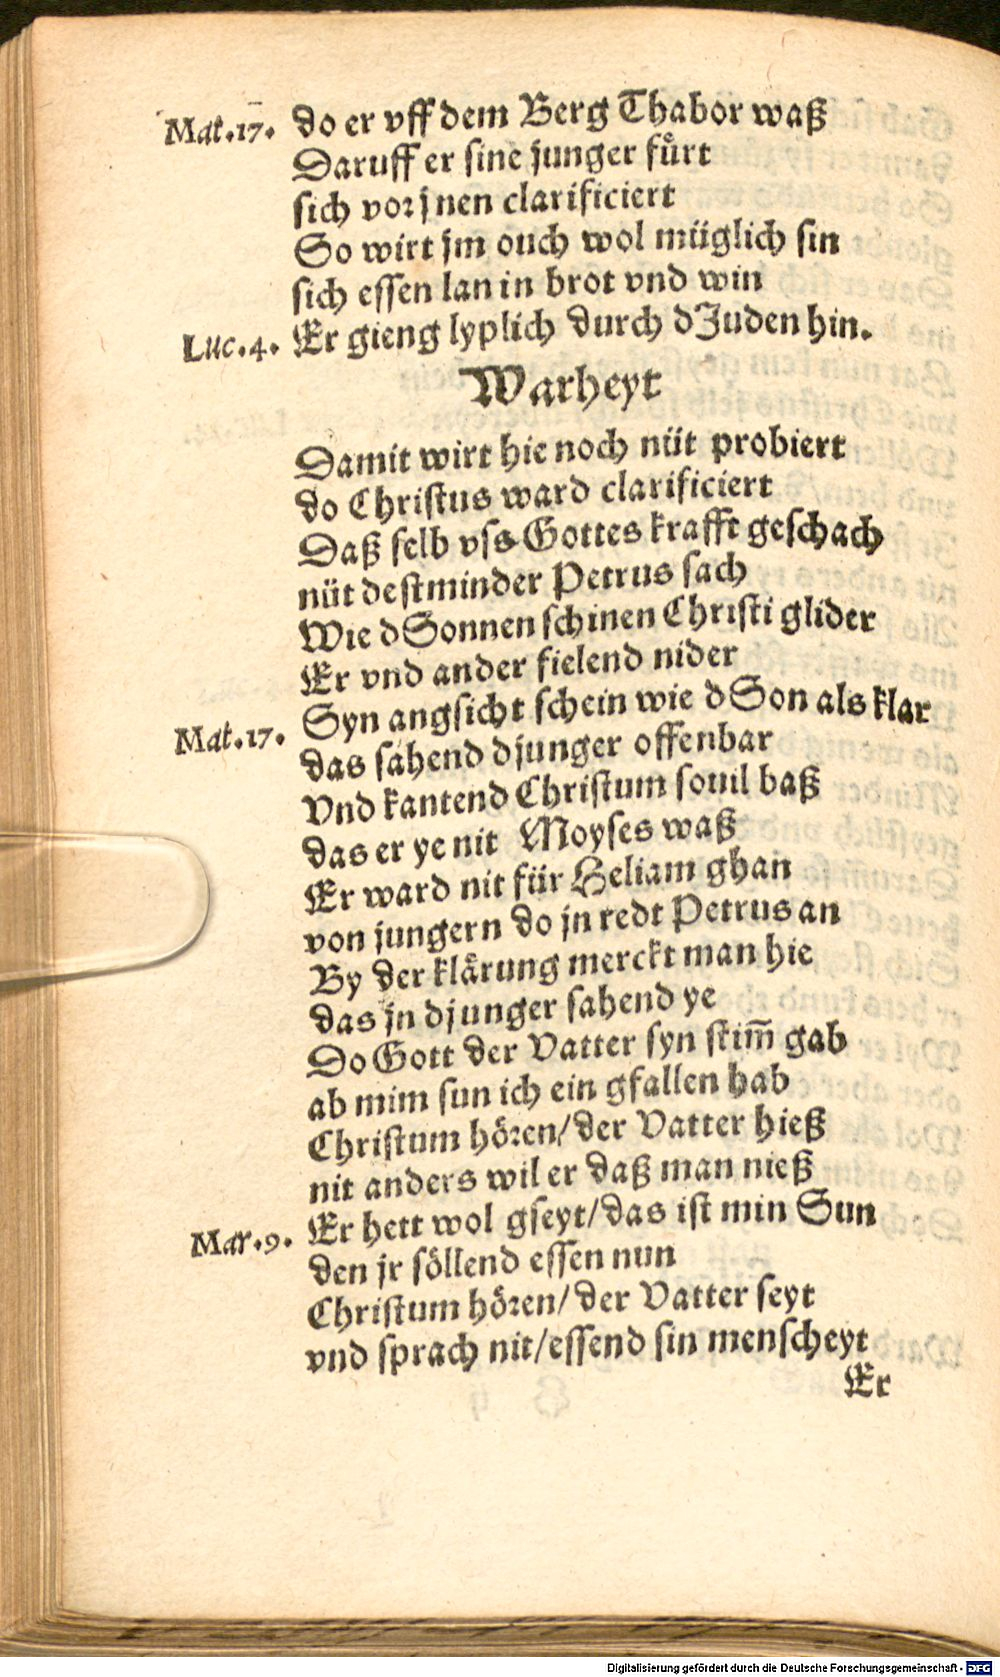 Mat.17. do er vff dem Berg Thabor waß
Daruff er sine junger fuͤrt
sich vor jnen clarificiert
So wirt jm ouch wol müglich sin
sich essen lan in brot vnd win
Luc.4. Er gieng lyplich durch dJuden hin.
Warheyt
Damit wirt hie noch nüt probiert
do Christus ward clarificiert
Daß selb vss Gottes krafft geschach
nüt destminder Petrus sach
Wie dSonnen schinen Christi glider
Er vnd ander fielend nider
Syn angsicht schein wie dSon als klar
Mat.17. das sahend djunger offenbar
Vnd kantend Christum souil baß
das er ye nit Moyses waß
Er ward nit für Heliam ghan
von jungern do jn redt Petrus an
By der klaͤrung merckt man hie
das jn djunger sahend ye
Do Gott der Vatter syn stim̄ gab
ab mim sun ich ein gfallen hab
Christum hoͤren/der Vatter hieß
nit anders wil er daß man nieß
Mar.9. Er hett wol gseyt/das ist min Sun
den jr soͤllend essen nun
Christum hoͤren/der Vatter seyt
vnd sprach nit/essend sin menscheyt
Er
Digitalisierung gefördert durch die Deutsche Forschungsgemeinschaft - DFG